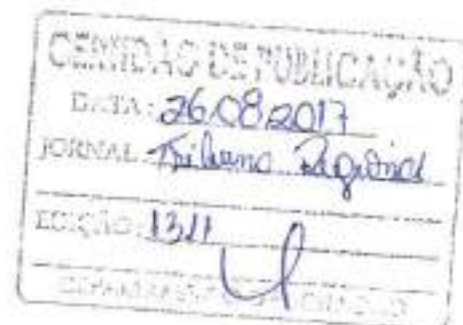 CERTIDÃO DE PUBLICAÇÃO
DATA: 26.08.2017
JORNAL Tribuna Regional
EDIÇÃO: 1311